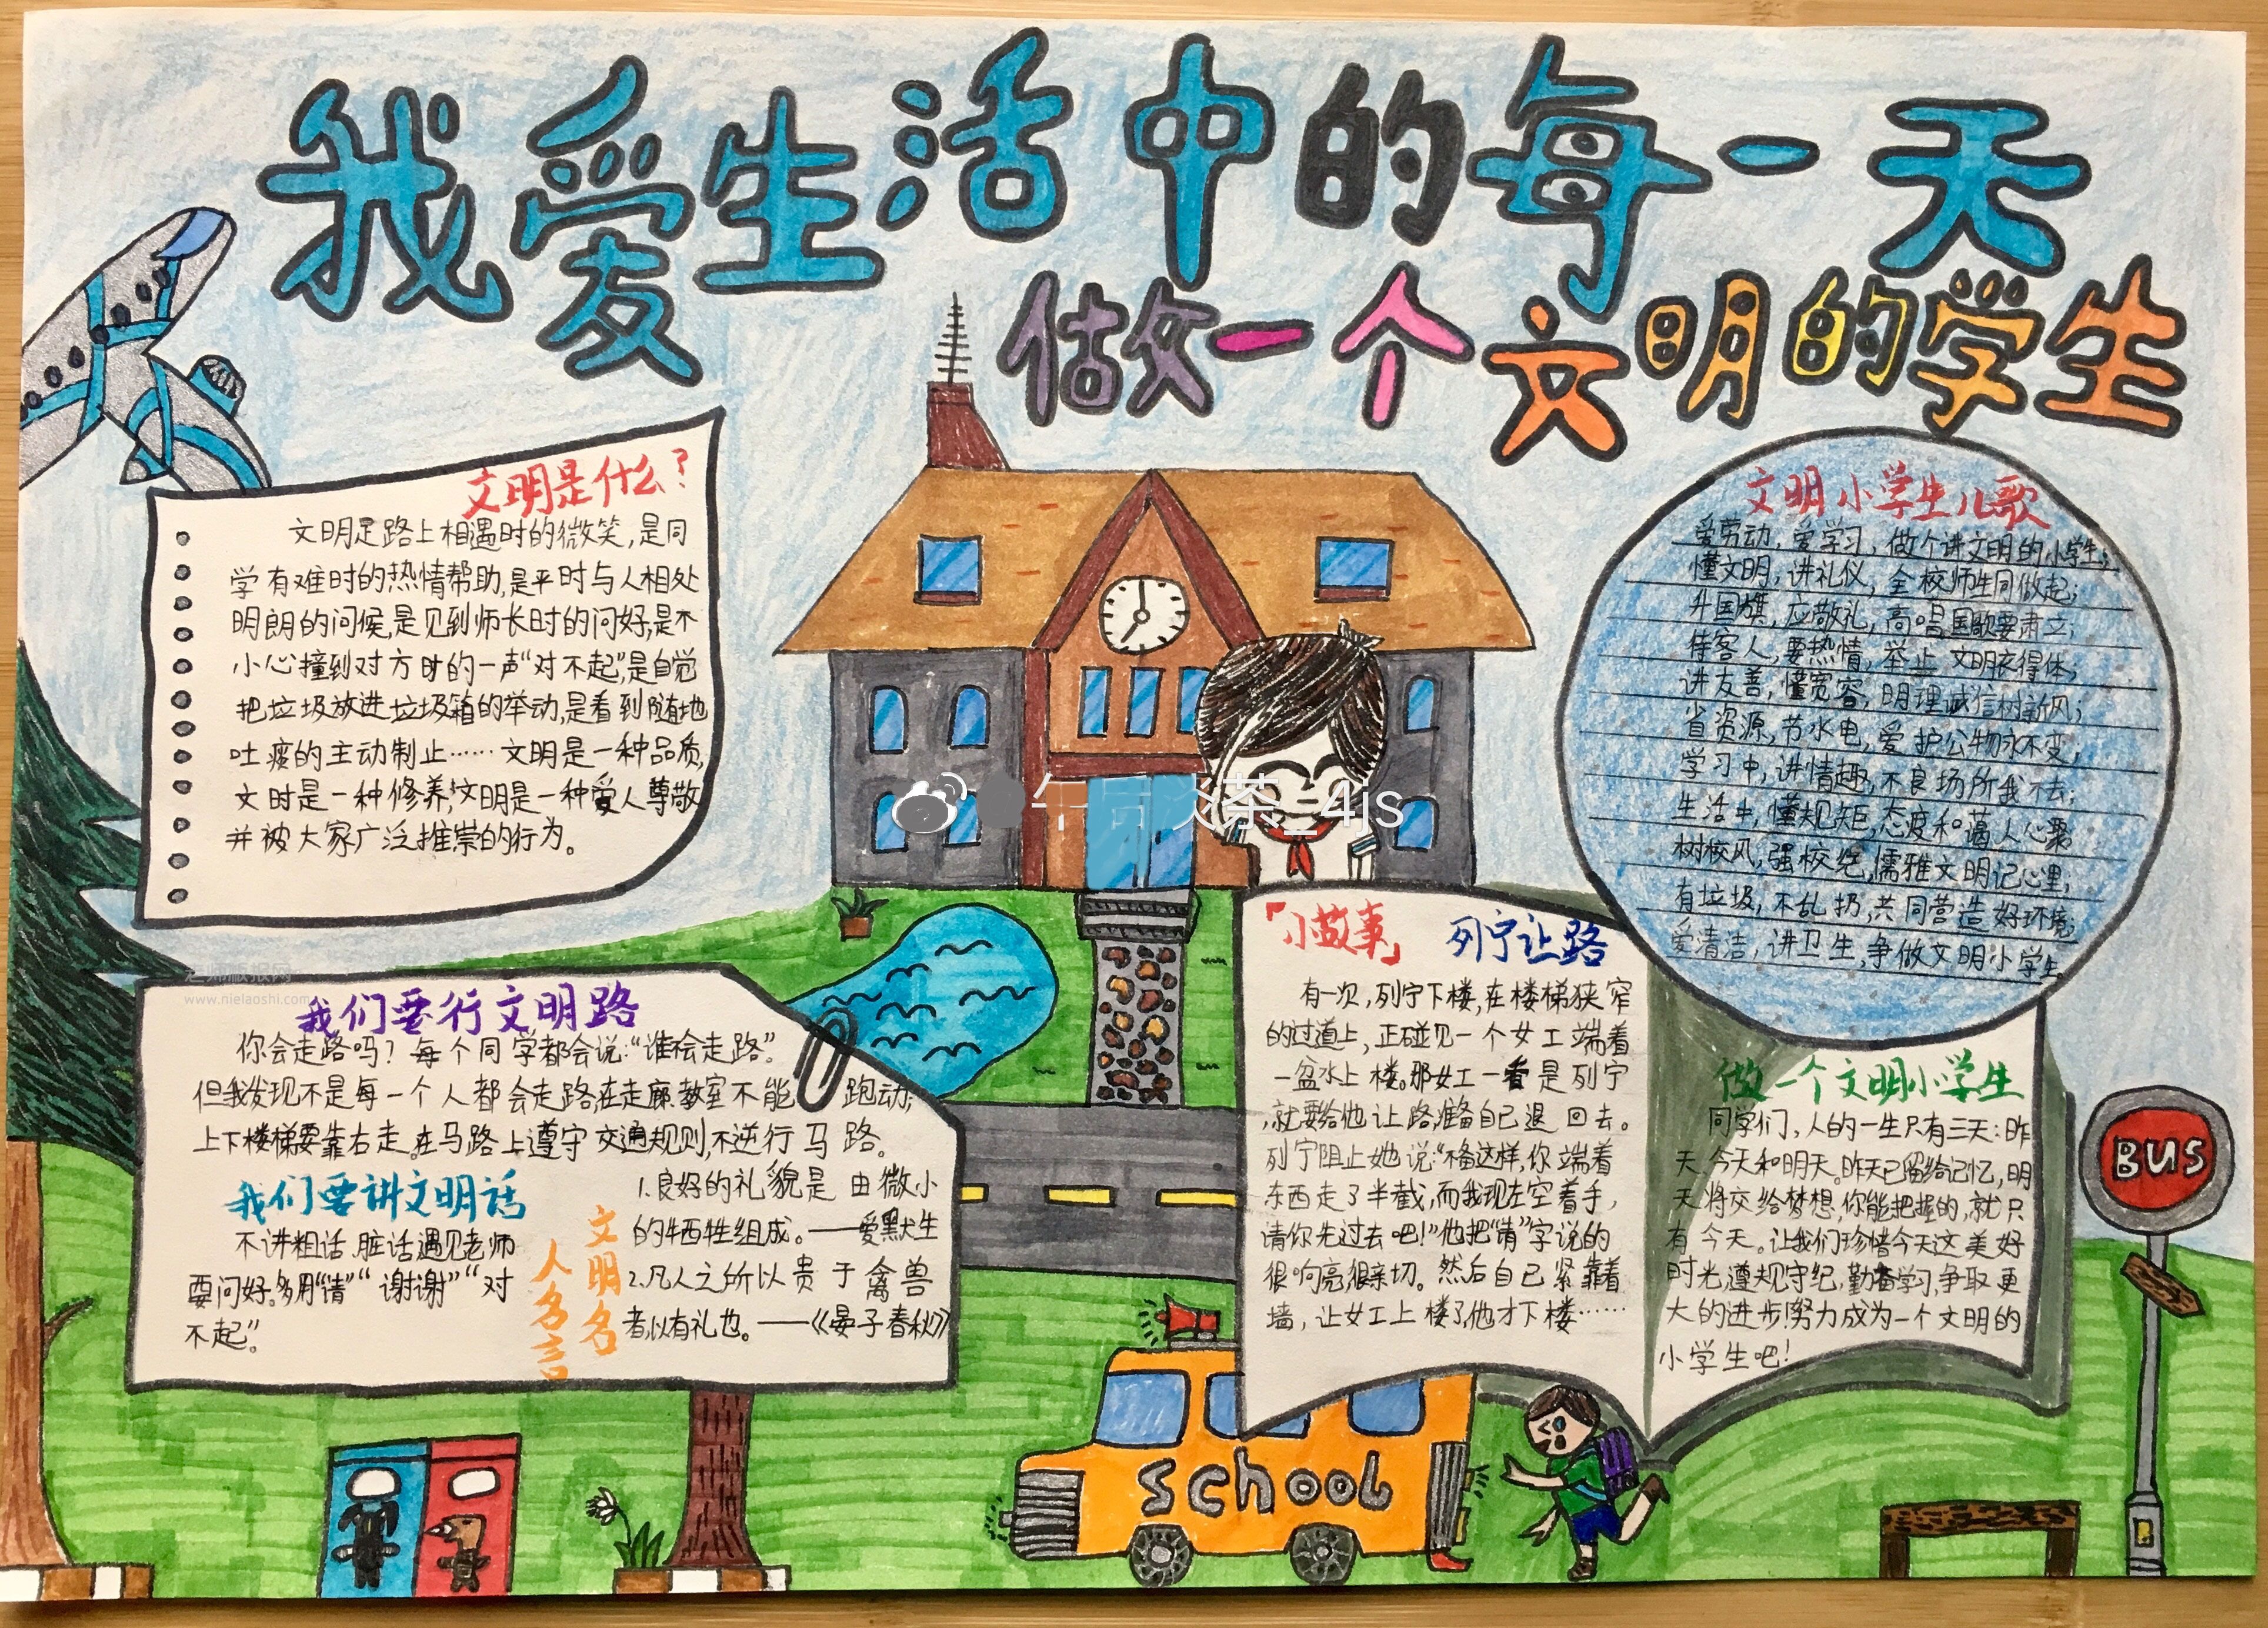 我爱生活中的每一天
做一个文明的学生
文明是什么?
文明是路上相遇时的微笑,是同
学有难时的热情帮助,是平时与人相处
明朗的问候,是见到师长时的问好,是不
小心撞到对方时的一声“对不起”,是自觉
把垃圾放进垃圾箱的举动,是看到随地
吐痰的主动制止……文明是一种品质,
文时是一种修养,文明是一种爱人尊敬
并被大家广泛推崇的行为。
文明小学生儿歌
爱劳动,爱学习,做个讲文明的小学生;
懂文明,讲礼仪,全校师生同做起;
升国旗,应敬礼,高唱国歌要肃立;
待客人,要热情,举止文明衣得体;
讲友善,懂宽容,明理诚信树新风;
省资源,节水电,爱护公物永不变;
学习中,讲情趣,不良场所我不去;
生活中,懂规矩,态度和蔼人心聚
树校风,强校纪,儒雅文明记心里;
有垃圾,不乱扔,共同营造好环境;
爱清洁,讲卫生,争做文明小学生。
我们要行文明路
你会走路吗?每个同学都会说:“谁不会走路”。
但我发现不是每一个人都会走路,在走廊教室不能跑动;
上下楼梯要靠右走。在马路上遵守交通规则,不逆行马路。
我们要讲文明话
不讲粗话、脏话遇见老师
要问好。多用“请”“谢谢”“对
不起”。
文明名
人名言
1.良好的礼貌是由微小
的牺牲组成。——爱默生
2.凡人之所以贵于禽兽
者,以有礼也。——《晏子春秋》
「小故事」 列宁让路
有一次,列宁下楼,在楼梯狭窄
的过道上,正碰见一个女工端着
一盆水上楼。那女工一看是列宁
,就要给他让路,准备自己退回去。
列宁阻止她说:“不备这样,你端着
东西走了半截,而我现在空着手,
请你先过去吧!”他把“请”字说的
很响亮,很亲切。然后自己紧靠着
墙,让女工上楼了,他才下楼……
做一个文明小学生
同学们,人的一生只有三天:昨
天、今天和明天。昨天已留给记忆,明
天将交给梦想,你能把握的,就只
有今天。让我们珍惜今天这美好
时光,遵规守纪,勤奋学习,争取更
大的进步!努力成为一个文明的
小学生吧!
BUS
SCHOOL
www.nielaoshi.com
_4js